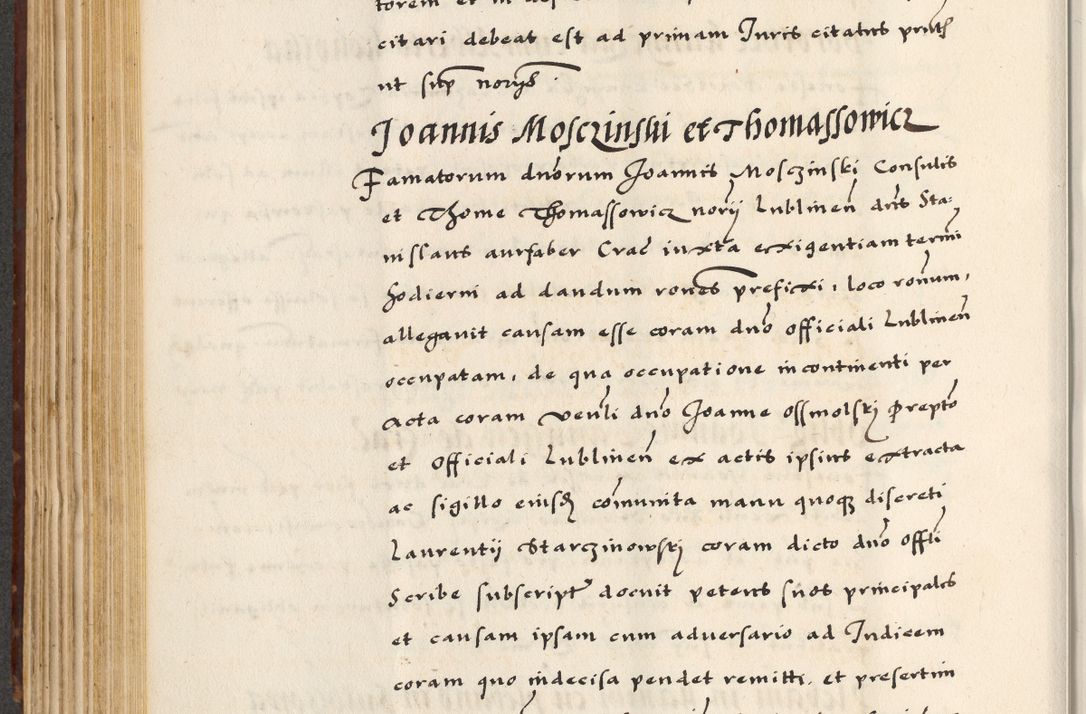 citari debeat est ad primam Juris citatus prout
ut sup norijs.
Joannis Mosczinski et Thomassowicz
Famatorum dnorum Joannis Mosczinski Consulis
et Thome Thomassowicz norij Lublinen dns Sta-
nislaus aurfaber Crac iuxta exigentiam termi
hodierni ad dandum rones prefixi, loco ronum,
allegavit causam esse coram dno officiali Lublinen
occupatam, de qua occupatione incontinenti per
acta coram venli dno Joanne Ossmolskj Prepto
et Officiali Lublinen ex actis ipsius extracta
ac sigillo eiusd comunita manu quoq discreti
Laurentij Starczinowskj coram dicto dno offli
Scribe subscript docuit petens suos principales
et causam ipsam cum adversario ad Judicem
coram quo indecisa pendet remitti, et presertim